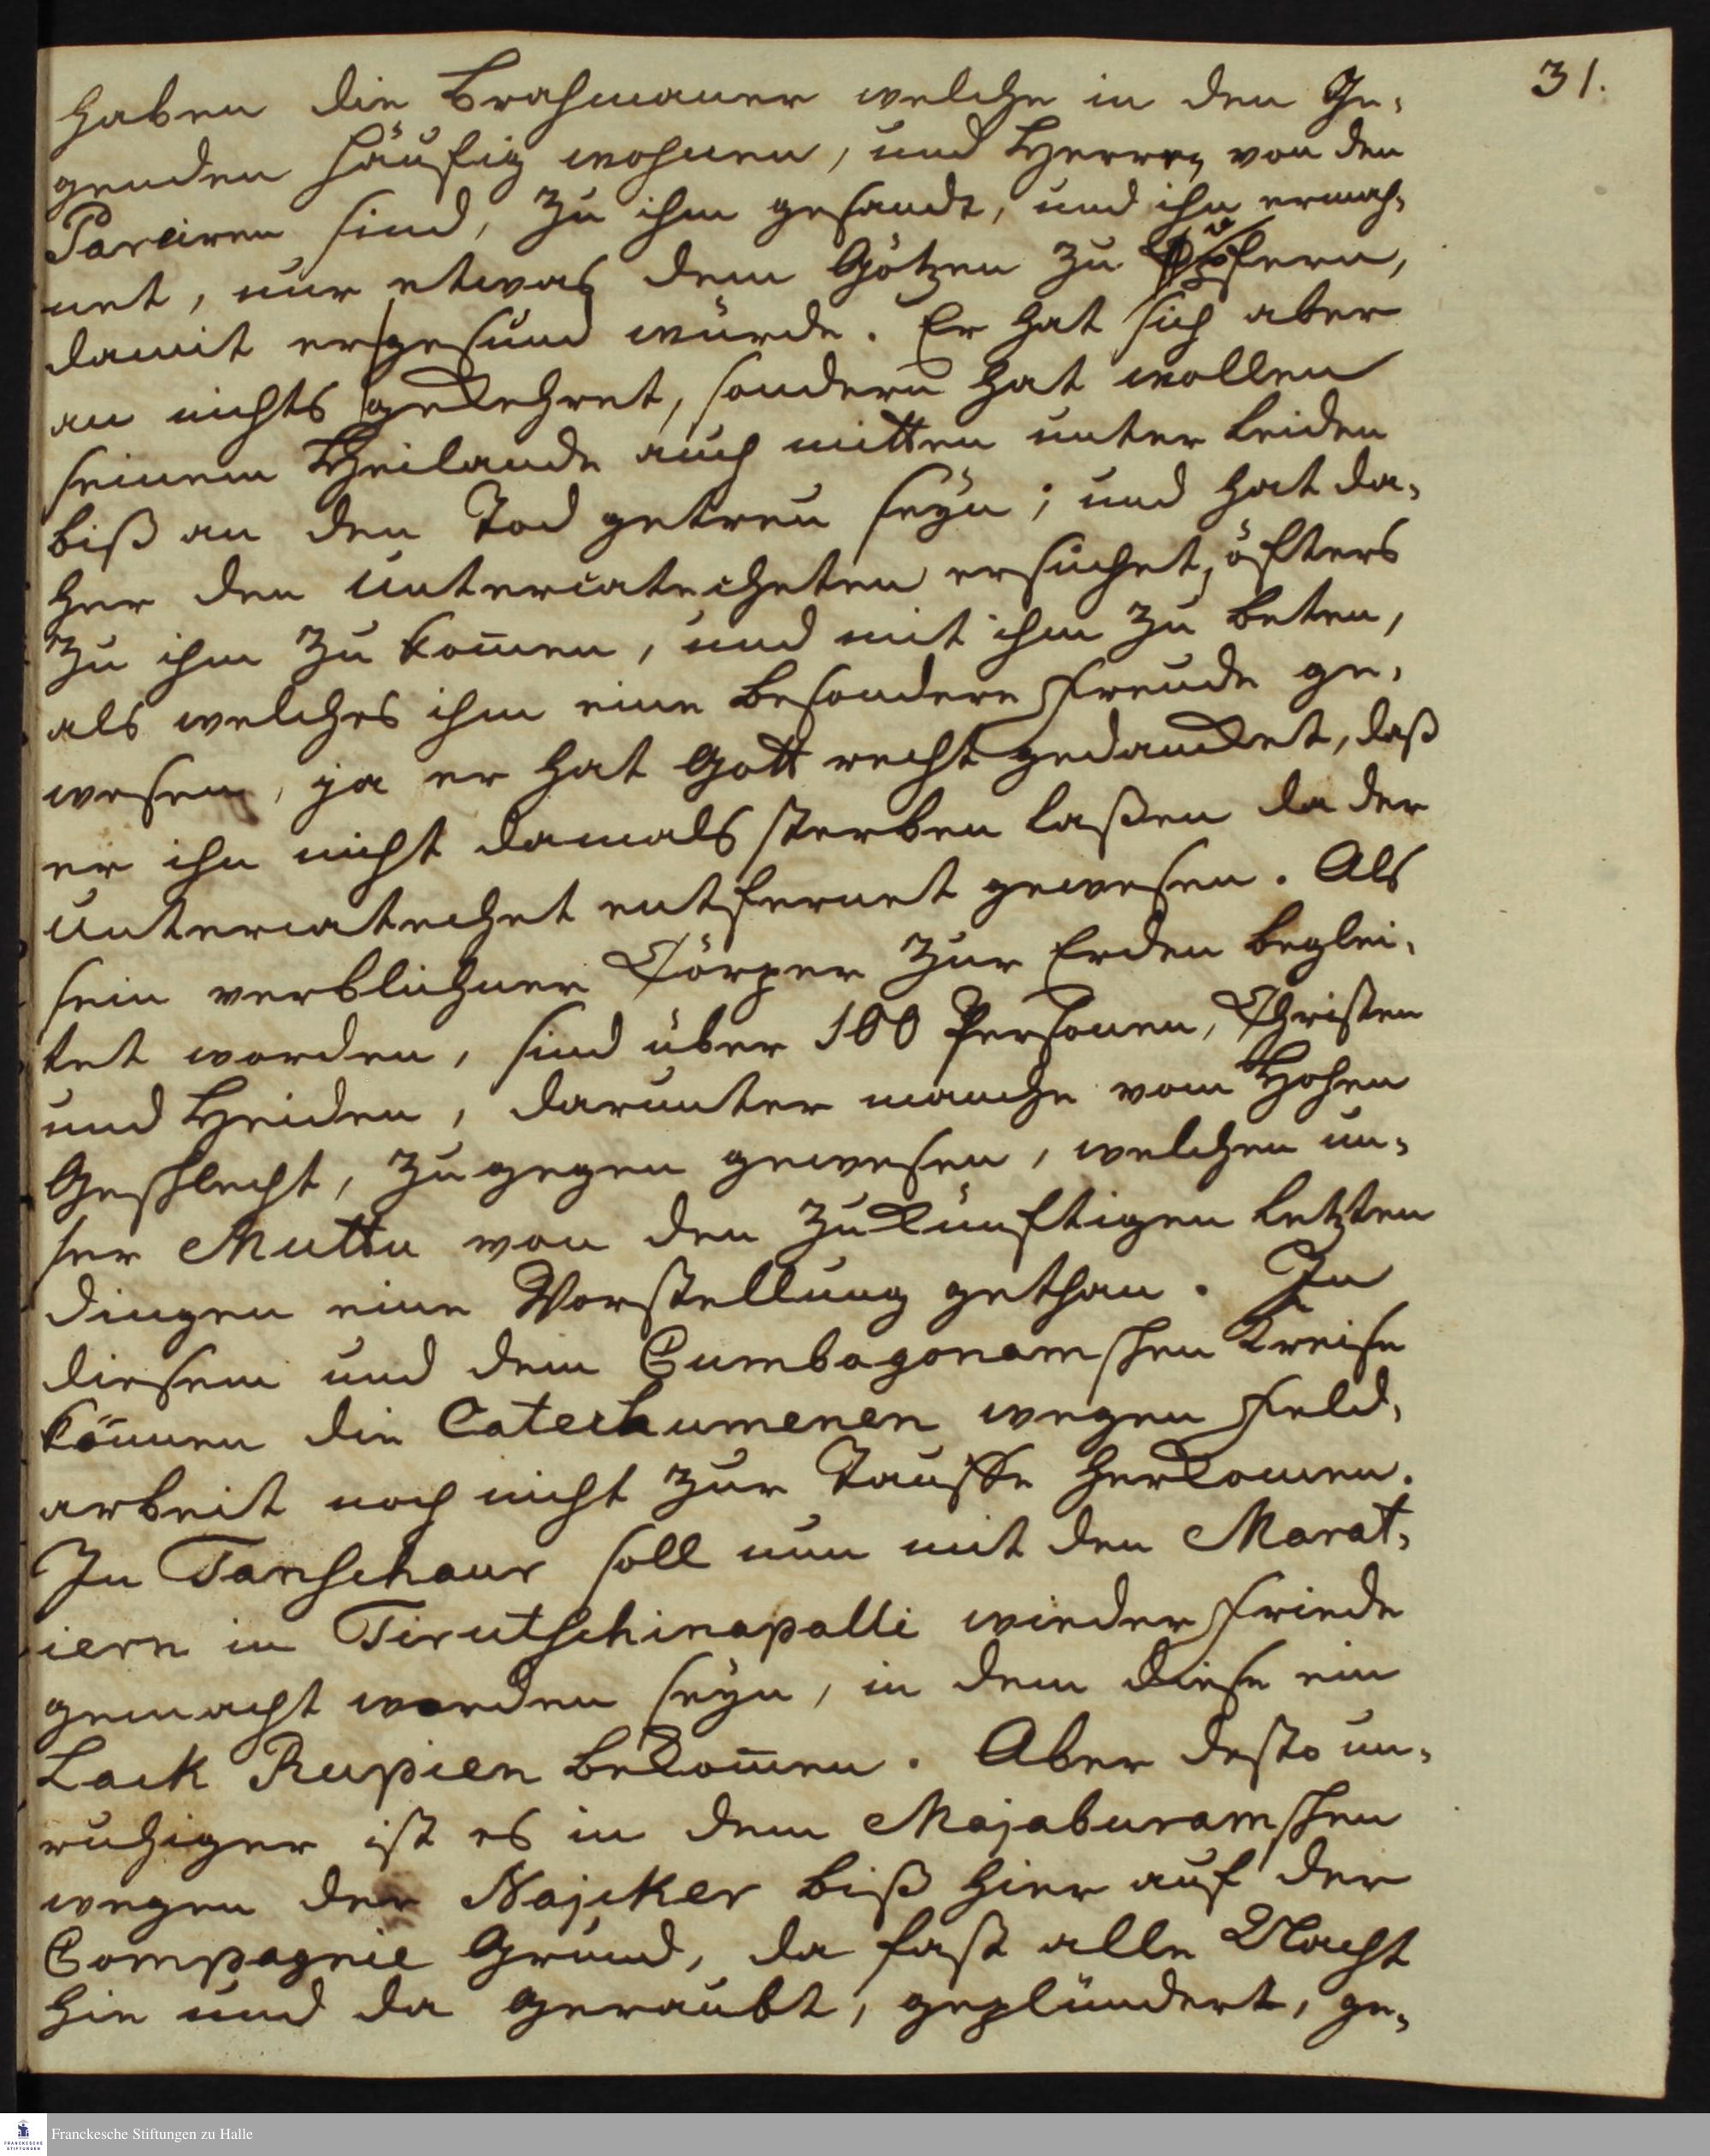 31.
haben die Brahmaner welche in den Ge-
genden häufig wohnen, und Herren von den
Pareiren sind, zu ihm gesandt, und ihn ermah-
net, nur etwas dem Götzen zu opfern,
damit er gesund würde. Er hat sich aber
an nichts gekehret, sondern hat wollen
seinem Heilande auch mitten unter Leiden
biß an den Tod getreu seyn; und hat da-
her den Untercatecheten ersuchet, öfters
zu ihm zu kom̄en, und mit ihm zu beten,
als welches ihm eine besondere Freude ge-
wesen, ja er hat Gott recht gedancket, daß
er ihn nicht damals sterben laßen da der
Untercatechet entfernet gewesen. Als
sein verblichner Cörper zur Erden beglei-
tet worden, sind über 100 Personen, Christen
und Heiden, darunter manche vom Hohen
Geschlecht, zugegen gewesen, welchen un-
ser Muttu von den zukünftigen letzten
dingen eine Vorstellung gethan. In
diesem und dem Cumbagonamschen Kreise
können die Catechumenen wegen Feld-
arbeit noch nicht zur Tauffe herkommen.
In Tanschaur soll nun mit den Marat-
iern in Tirutschinapalli wieder Friede
gemacht worden seyn, in dem diese ein
Lack Rupien bekom̄en. Aber desto un-
ruhiger ist es in dem Majaburamschen
wegen der Najcker biß hier auf der
Compagnie Grund, da fast alle Nacht
hie und da geraubt, geplündert, ge-
Franckesche Stiftungen zu Halle
FRANCKESCHE
STIFTUNGEN